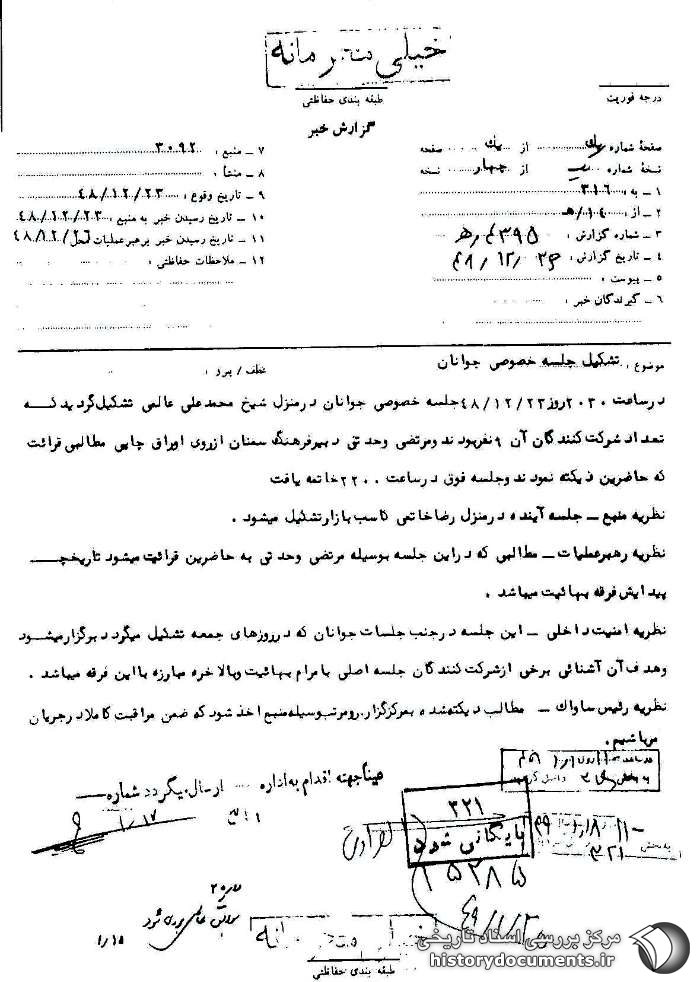 خیلی محرمانه
طبقه بندی حفاظتی
درجه فوریت
گزارش خبر
صفحهٔ شماره یک از یک صفحه
نسخهٔ شماره از چهار نسخه
۱ ـ به : ۳۱۶
۲ ـ از : ۱۴/ﻫ
۳ ـ شماره گزارش :
۴ ـ تاریخ گزارش : ۴۸/۱۲/۲۶
۵ ـ پیوست :
۶ ـ گیرندگان خبر :
۷ ـ منبع : ۳۰۹۲
۸ ـ منشأ :
۹ ـ تاریخ وقوع : ۴۸/۱۲/۲۳
۱۰ ـ تاریخ رسیدن خبر به منبع : ۴۸/۱۲/۲۳
۱۱ ـ تاریخ رسیدن خبر برهبر عملیات محل ۴۸/۱۲/۲۶
۱۲ ـ ملاحظات حفاظتی :
موضوع : تشکیل جلسه خصوصی جوانان
عطف / پیرو :
در ساعت ۲۰۳۰ روز ۴۸/۱۲/۲۳ جلسه خصوصی جوانان در منزل شیخ محمدعلی عالمی تشکیل گردید که
تعداد شرکت کنندگان آن ۹ نفر بودند و مرتضی وحدتی دبیر فرهنگ سمنان از روی اوراق چاپی مطالبی قرائت
که حاضرین دیکته نمودند و جلسه فوق در ساعت ۲۲۰۰ خاتمه یافت
نظریه منبع ـ جلسه آینده در منزل رضا خاتمی کاسب بازار تشکیل میشود .
نظریه رهبر عملیات ـ مطالبی که در این جلسه بوسیله مرتضی وحدتی به حاضرین قرائت میشود تاریخچه
پیدایش فرقه بهائیت میباشد .
نظریه امنیت داخلی ـ این جلسه در جنب جلسات جوانان که در روزهای جمعه تشکیل میگردد برگزار میشود
وهدف آن آشنائی برخی از شرکت کنندگان جلسه اصلی با مرام بهائیت و بالاخره مبارزه با این فرقه میباشد .
نظریه رئیس ساواک ـ مطالب دیکته شده به مرکز گزار . رو مرتب وسیله منبع اخذ شود که ضمن مراقبت کاملا در جریان
میباشیم .
عیناً جهت اقدام به اداره ... ارسال میگردد شماره
۱/۱۷
۳۲۱
بایگانی شود
۱۵۲۸۵
به بخش ۳۲۱
۱/۱۵
طبقه بندی حفاظتی
مرکز بررسی اسناد تاریخی
historydocuments.ir